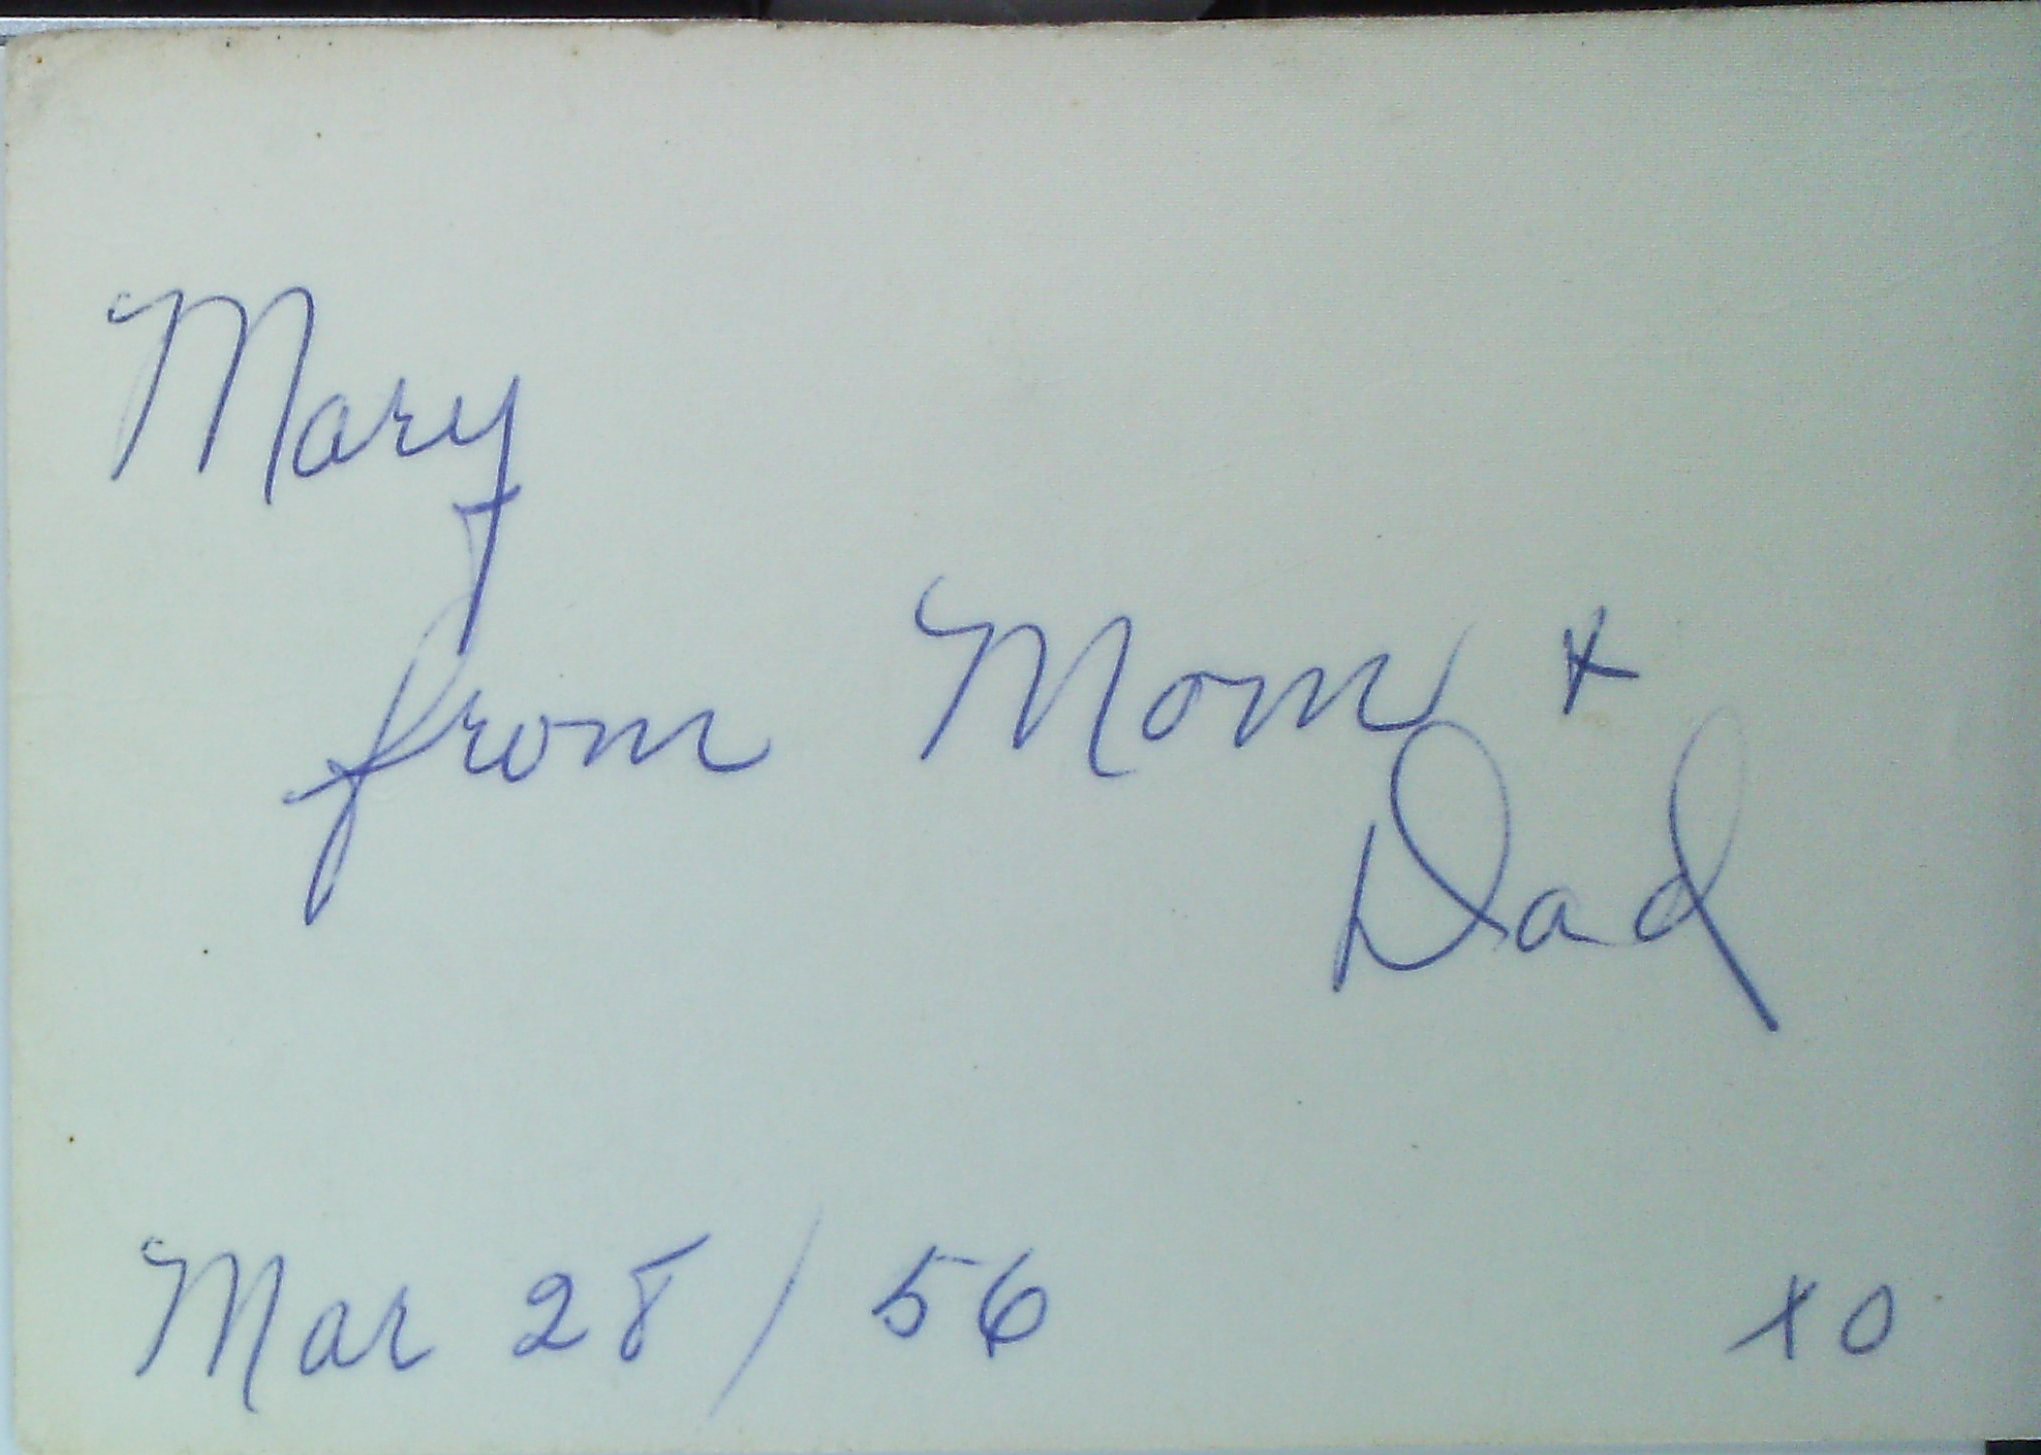 Mary
from Mom +
Dad
Mar 28 / 56 xo